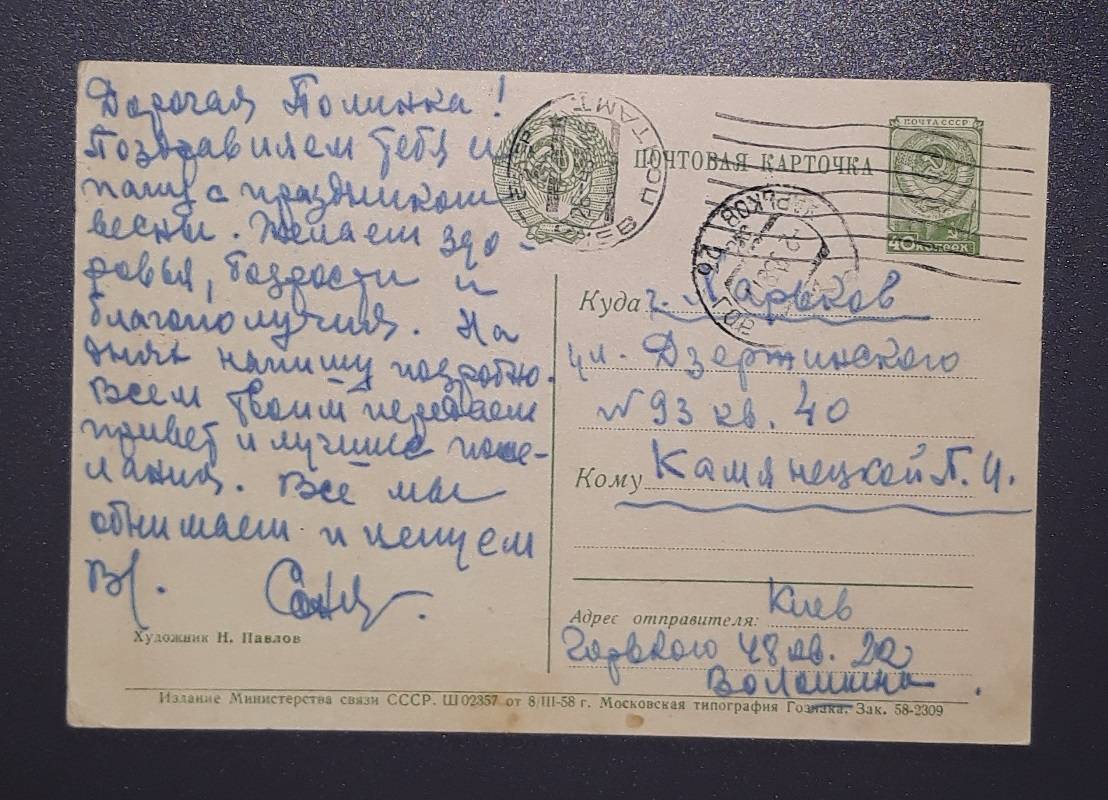 Дорогая Полинка!
Поздравляем тебя и
папу с праздником
весны. Желаем здо-
ровья, бодрости и
благополучия. На
днях напишу подробно.
Всем твоим передаем
привет и лучшие поже-
лания. Все мы
обнимаем и целуем
Вас. Соня.
Художник Н. Павлов
ПОЧТОВАЯ КАРТОЧКА
ПОЧТА СССР
40 копеек
КИЕВ ПОЧТАМТ
ХАРЬКОВ
Куда г. Харьков
ул. Дзержинского
№ 93 кв. 40
Кому Камянецкой П. И.
Адрес отправителя: Киев
Горького 48 кв. 22
Волошина.
Издание Министерства связи СССР. Ш 02357 от 8/III-58 г. Московская типография Гознака. Зак. 58-2309